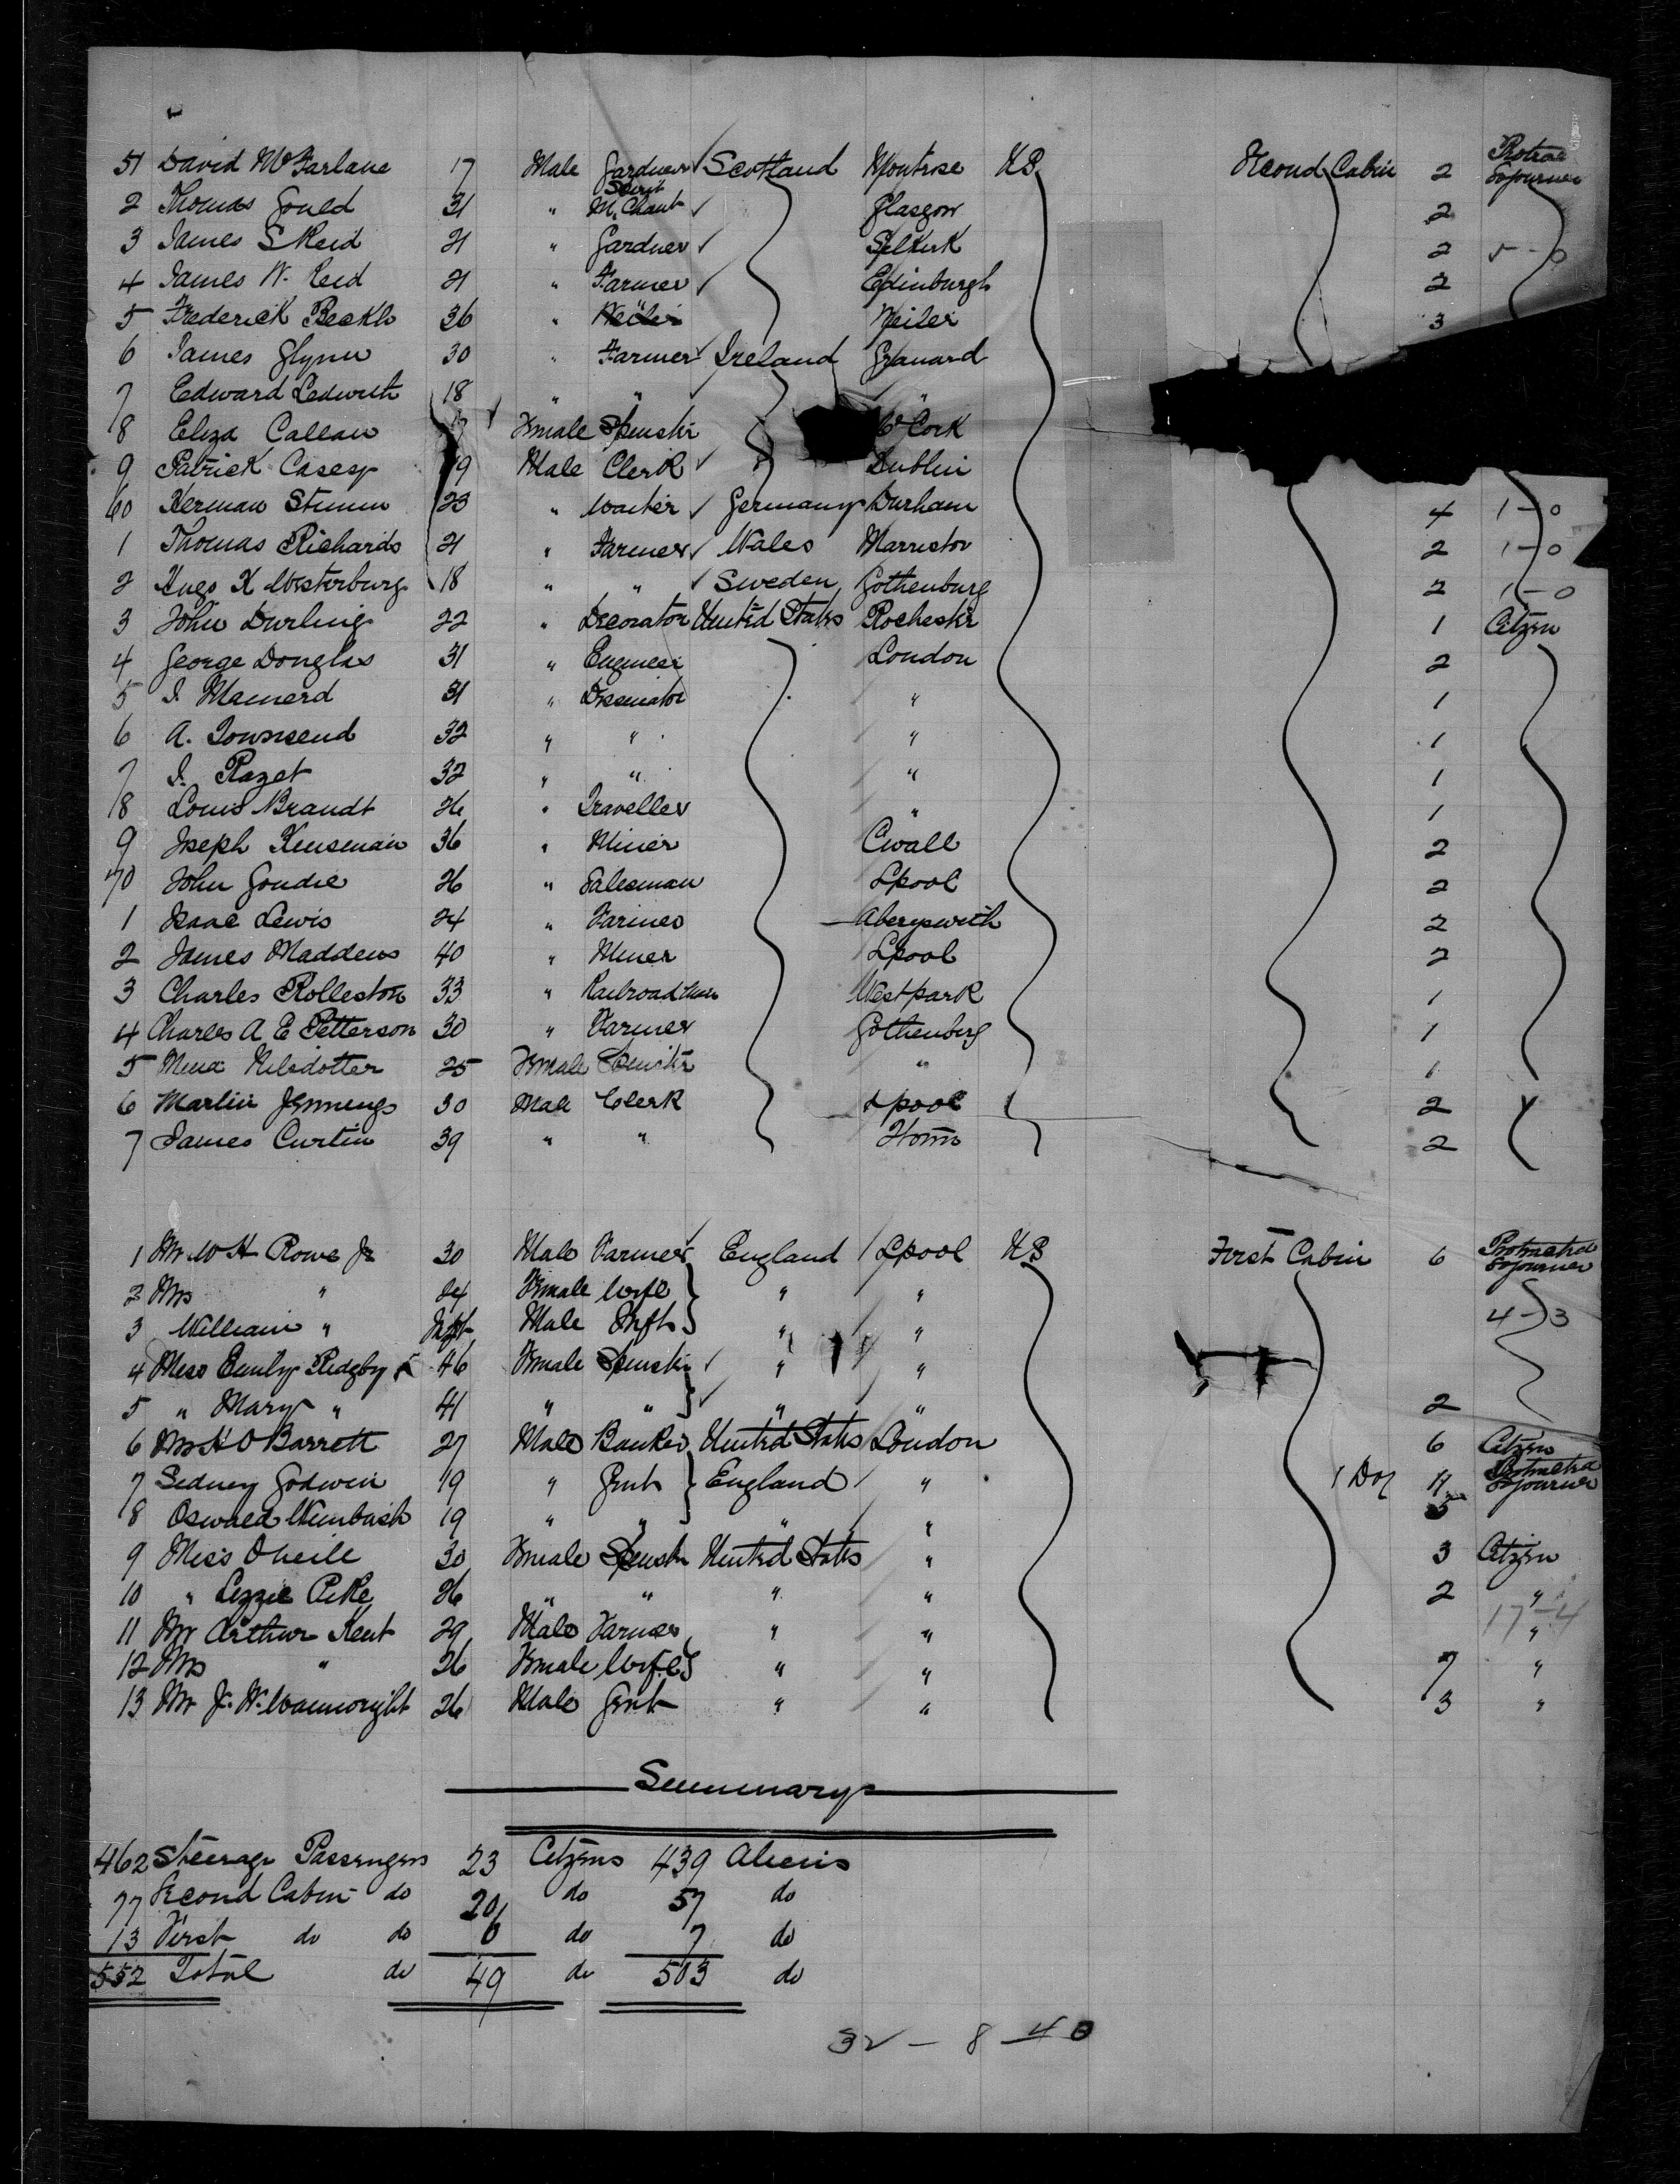 51 David McFarlane 17 Male Gardner Scotland Montrose N.B. Second Cabin 2 Protrac Sojourner
2 Thomas Gould 31 " Spirit M. Chant Glasgow 2
3 James S Reid 21 " Gardner Selkirk 2 5-0
4 James W. Reid 21 " Farmer Edinburgh 2
5 Frederick 36 " Weiler 3
6 James Glynn 30 " Farmer Ireland Granard
7 Edward Ledwith 18 " " "
8 Eliza Callan Female Spinstr Co Cork
9 Patrick Casey 19 Male Clerk Dublin
60 Herman Stumm 23 " Waiter Germany Durham 4 1-0
1 Thomas Richards 21 " Farmer Wales 2 1-0
2 Hugo K Westerburg 18 " " Sweden Gothenburg 2 1-0
3 John Durling 22 " Decorator United States Rochestr 1 Citzen
4 George Douglas 31 " Engineer London 2
5 31 " "  1
6 A. Townsend 32 " " " 1
7 Razet 32 " " " 1
8 Louis Brandt 26 " Traveller " 1
9 Joseph Kinsman 36 " Miner Cwall 2
70 John Goudie 26 " Salesman Lpool 2
1 Isaac Lewis 24 " Farmer Aberyswith 2
2 James Maddews 40 " Miner Lpool 2
3 Charles Rolleston 33 " Railroad Man Westpark 1
4 Charles A E Petterson 30 " Farmer Gothenberg 1
5 Nilsdotter 25 Female Spinstr " 1
6 Martin Jennings 30 Male Clerk Lpool 2
7 James Curtin 39 " " 2
1 Mr W H Rowe Jr 30 Male Farmer England Lpool N.B. First Cabin 6 Protracted Sojourner
2 Mrs " 24 Female Wife " "
3 William " Inft Male Inft " " 4-3
4 Miss Emily Ridgby 46 Female Spinstr " "
5 " Mary " 41 " " " " 2
6 H O Barrett 27 Male Banker United States London 6 Citzen
7 Sedney Godwin 19 " Gent England " 1 Dog 11 Protracted Sojourner
8 Oswald Wimbush 19 " " " " 5
9 Miss Oneile 30 Female Spinstr United States " 3 Citzen
10 " Lizzie Pike 26 " " " " 2 "
17-4
11 Mr Arthur Kent 29 Male Farmer " " "
12 Mrs " 26 Female Wife " " 7 "
13 Mr J. W. Wainwright 26 Male Gent " " 3 "
Summary
462 Steerage Passengers 23 Citzens 439 Aliens
77 Second Cabin do 20 do 57 do
13 First do do 6 do 7 do
552 Total do 49 do 503 do
32 - 8 - 40